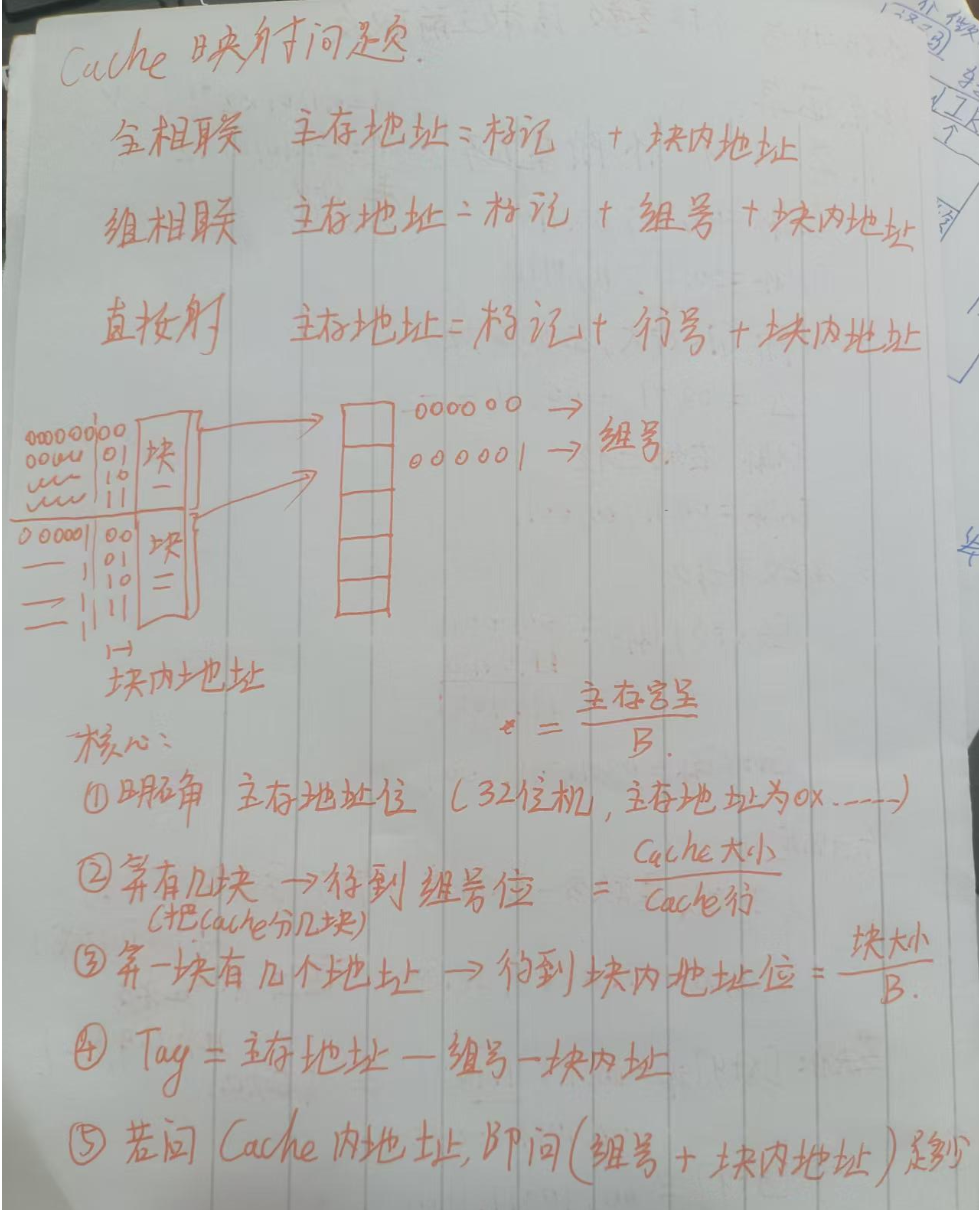 Cache 映射问题.
全相联 主存地址=标记 + 块内地址
组相联 主存地址=标记 + 组号 + 块内地址
直接射 主存地址=标记 + 行号 + 块内地址
00000000
0000 01
10
11
块一
000001 00
01
10
11
块二
000000 → 组号
000001 →
块内地址
核心:
= 主存容量 / B.
①明确 主存地址位 (32位机, 主存地址为0x……)
②算有几块 → 得到组号位 = Cache大小 / Cache行
(把Cache分几块)
③算一块有几个地址 → 得到块内地址位 = 块大小 / B.
④ Tag = 主存地址 — 组号 — 块内址
⑤ 若问 Cache 内地址, 即问(组号 + 块内地址)是多少